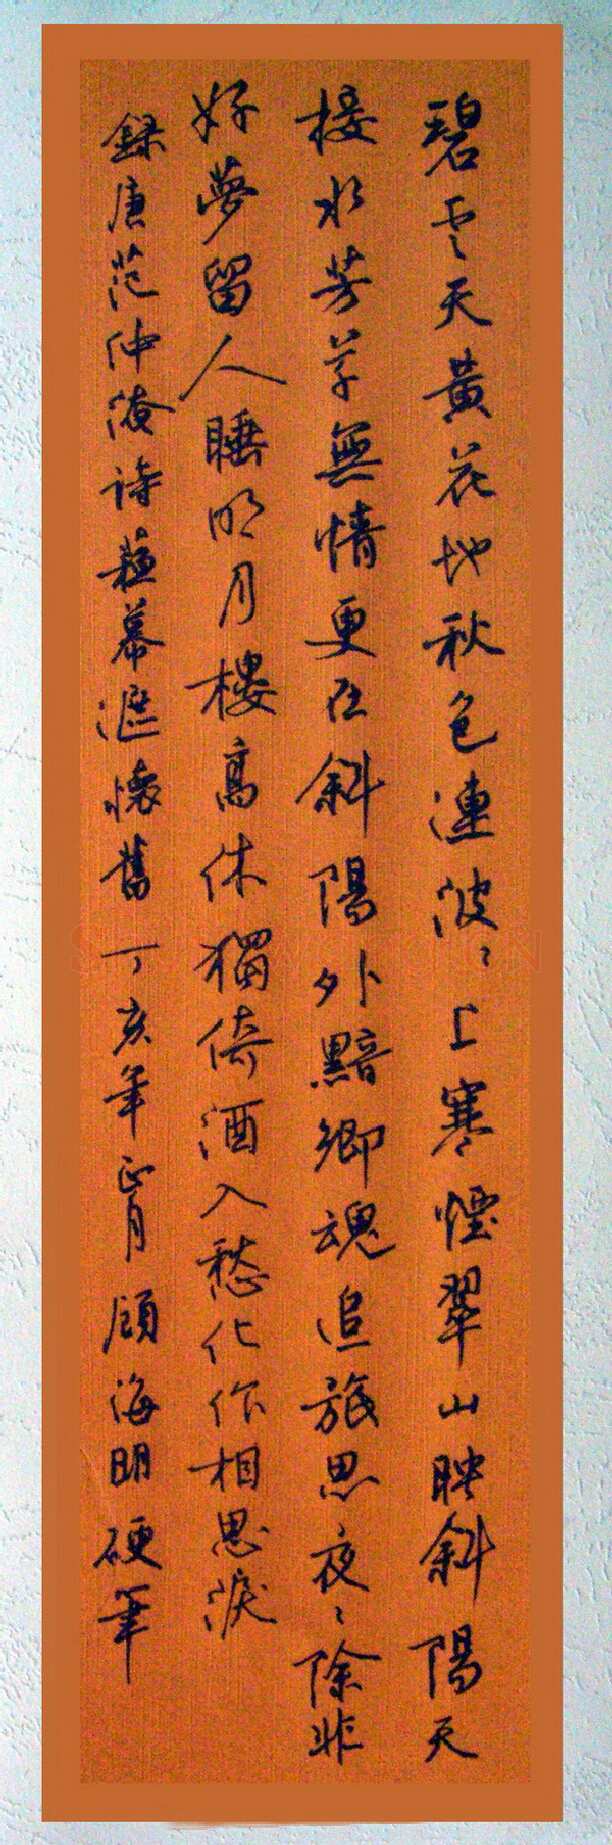 碧雲天黃花地秋色連波〻上寒煙翠山映斜陽天
接水芳草無情更在斜陽外黯鄉魂追旅思夜〻除非
好夢留人睡明月樓高休獨倚酒入愁化作相思淚
錄唐范仲淹詩蘇幕遮懷舊丁亥年正月顧海明硬筆